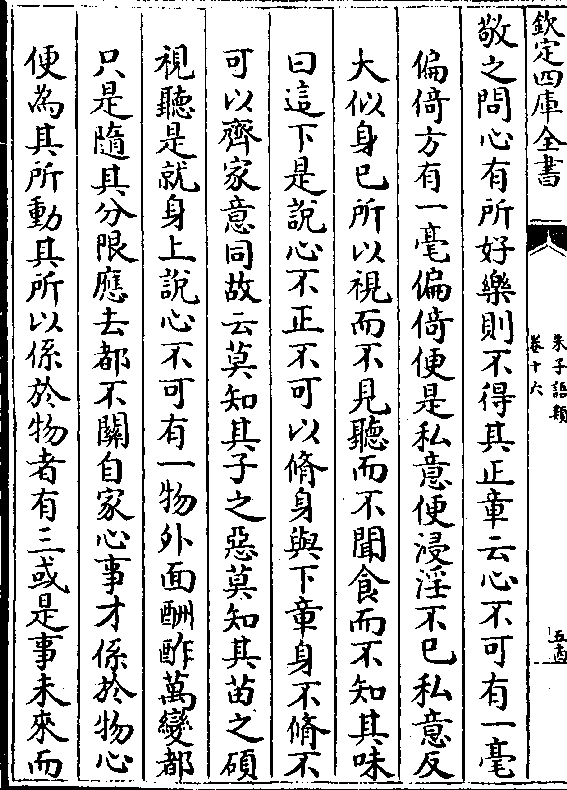 欽定四庫全書
朱子語類
卷十六
五酉
敬之問心有所好樂則不得其正章云心不可有一毫
偏倚方有一毫偏倚便是私意便浸淫不已私意反
大似身己所以視而不見聽而不聞食而不知其味
曰這下是說心不正不可以脩身與下章身不脩不
可以齊家意同故云莫知其子之惡莫知其苗之碩
視聽是就身上說心不可有一物外面酬酢萬變都
只是隨其分限應去都不關自家心事才係於物心
便為其所動其所以係於物者有三或是事未來而